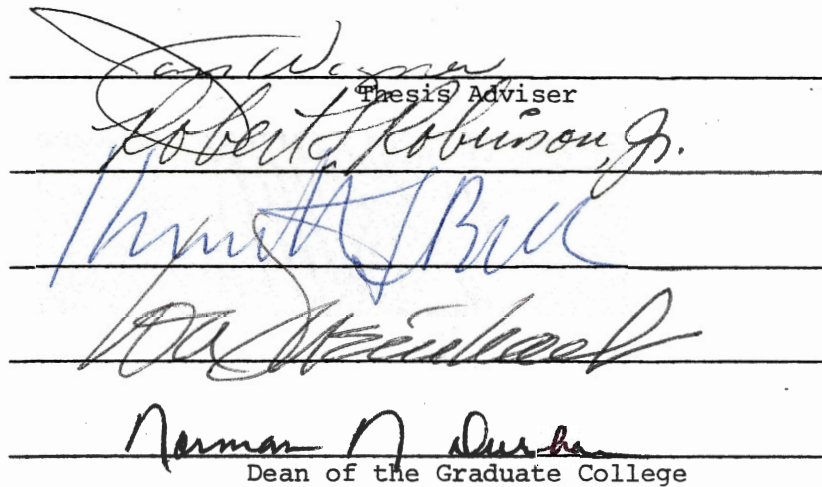 Jan Wagner
Thesis Adviser
Robert L. Robinson, Jr.
Kenneth J Bell
Norman N Durham
Dean of the Graduate College